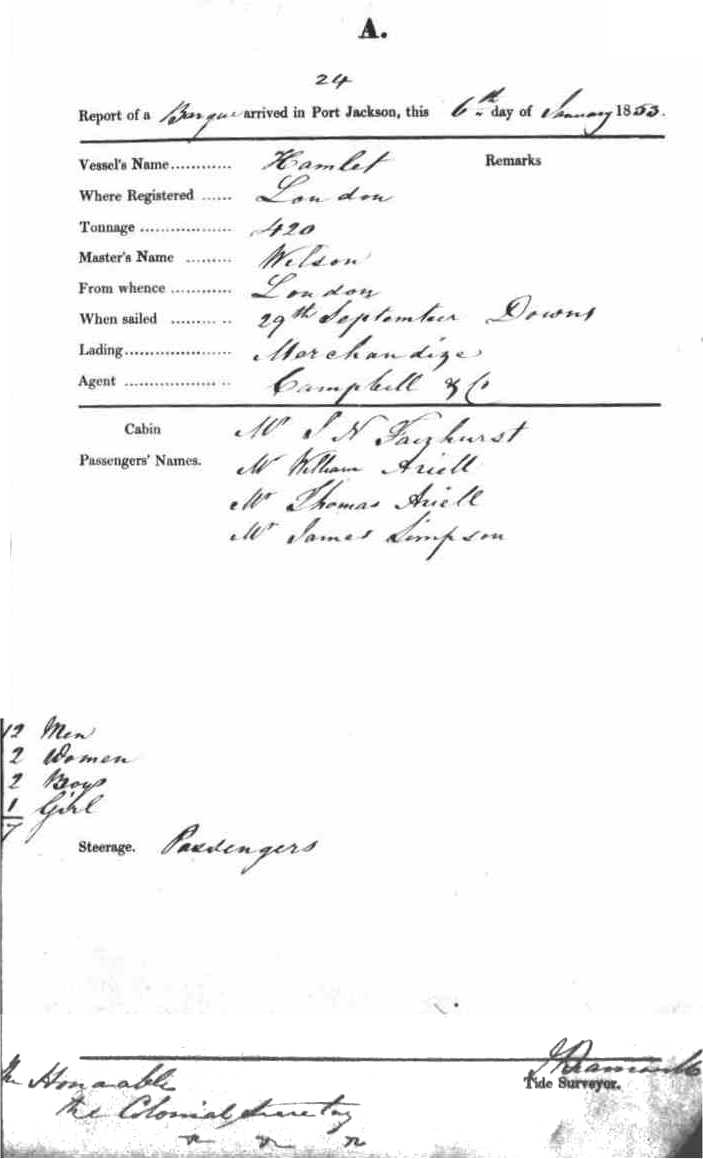 A.
24
Report of a Barque arrived in Port Jackson, this 6th day of January 1853.
Vessel's Name............ Hamlet Remarks
Where Registered ...... London
Tonnage .................. 420
Master's Name ......... Wilson
From whence ............ London
When sailed ......... .. 29th September Downs
Lading..................... Merchandize
Agent .................. .. Campbell & Co
Cabin Mr J N Fairhurst
Passengers' Names. Mr William Ariell
Mr Thomas Ariell
Mr James Simpson
12 Men
2 Women
2 Boys
1 Girl
7
Steerage. Passengers
The Honorable
Tide Surveyor.
the Colonial Secretary